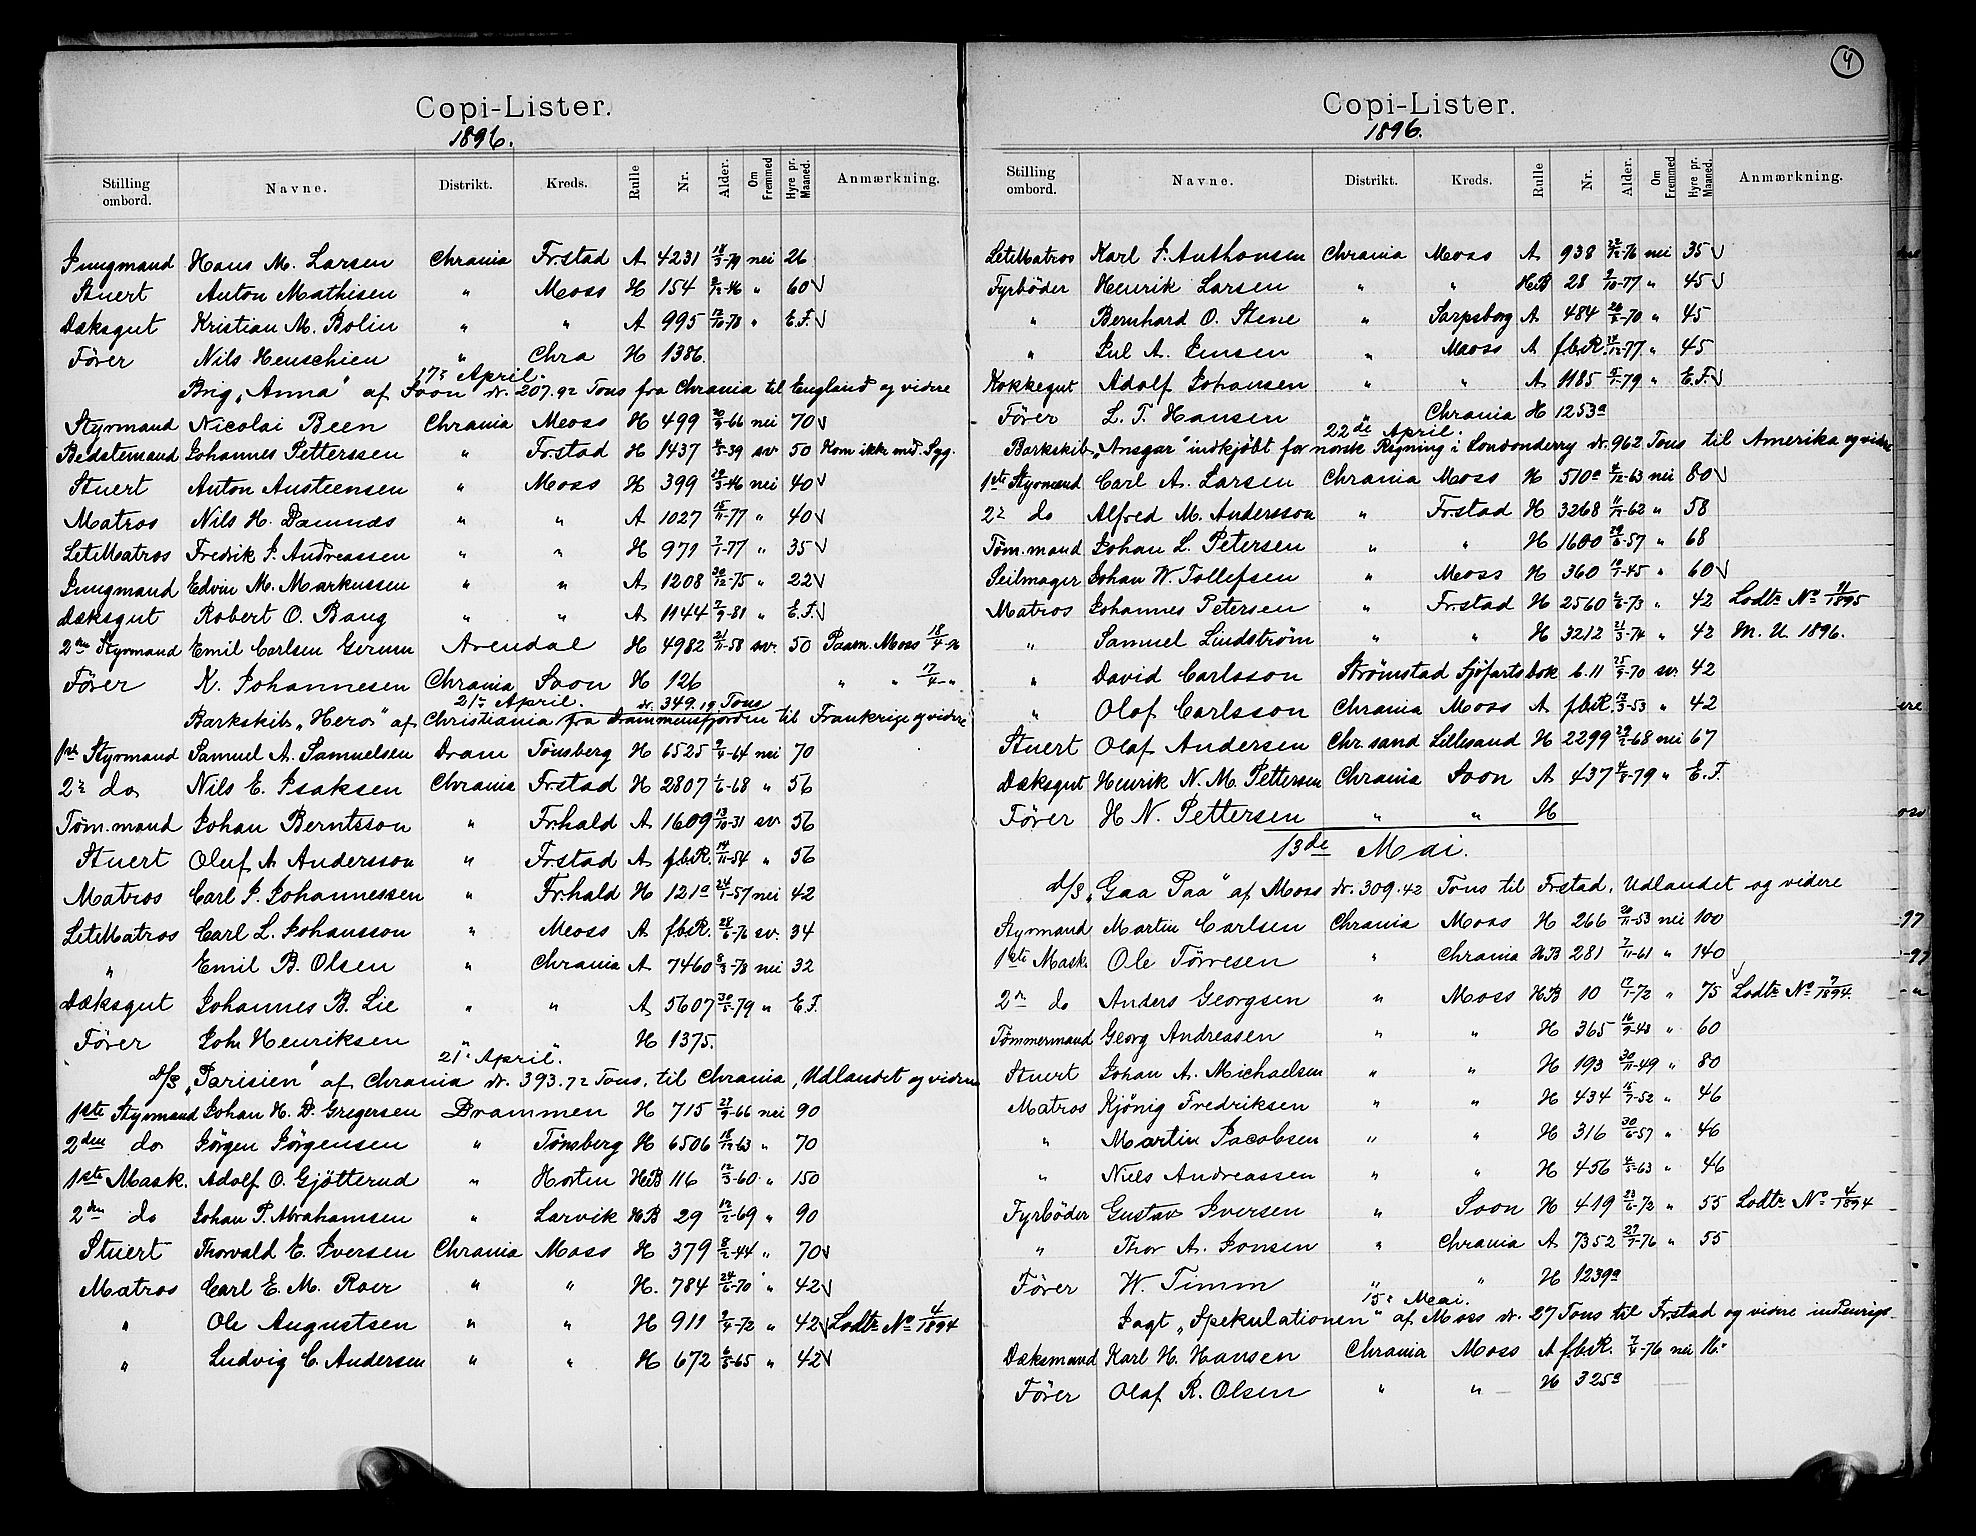 Copi-Lister.
1896.
Stilling ombord. Navne. Distrikt. Kreds. Rulle Nr. Alder. Om Fremmed Hyre pr. Maaned. Anmærkning.
Jungmand Hans M. Larsen Chrania Frstad A 4231 18/3-79 nei 26
Stuert Anton Mathisen " Moss H 154 -46 " 60 √
Dæksgut Kristian M. Bolin " " A 995 12/10-78 " E.F. √
Fører Nils Henschien " Chra H 1386.
17de April.
Brig „Anna" af Soon dr. 207.92 Tons fra Chrania til England og videre
Styrmand Nicolai Been Chrania Moss H 499 -66 nei 70 √
Bedstemand Johannes Petterssen " Frstad H 1437 -39 sv 50 Kom ikke med. Syg.
Stuert Anton Austeensen " Moss H 399 -46 nei 40 √
Matros Nils H. Damnæs " " A 1027 15/11-77 " 40 √
LetMatros Fredrik J. Andreassen " " H 971 7/1-77 " 35 √
Jungmand Edvin M. Markussen " " A 1208 30/12-75 " 22 √
Dæksgut Robert O. Bang " " A 1144 7/9-81 " E.F. √
2den Styrmand Emil Carlsen Germun Arendal H 4982 21/11-58 sv. 50 Paam. Moss 18/4-
Fører K. Johannesen Chrania Soon H 126 " " 17/4-"
21de April. dr. 349.19 Tons
Barkskib „Hero" af Christiania fra Drammensfjorden til Frankrige og videre
1ste Styrmand Samuel A. Samuelsen Dram Tønsberg H 6525 9/4-64 nei 70
2n do Nils E. Isaksen Chrania Frstad H 2807 1/6-68 " 56
Tøm.mand Johan Berntsson " Frhald A 1609 13/10-31 sv. 56
Stuert Oluf A. Andersson " Frstad A fbR. 14/11-54 " 56
Matros Carl J. Johannessen " Frhald H 121a 24/1-57 nei 42
LetMatros Carl L. Johansson " Moss A fbR. 28/6-76 sv. 34
" Emil B. Olsen " Chrania A 7460 8/3-78 nei 32
Dæksgut Johannes B. Lie " " A 5607 30/5-79 " E.F.
Fører Joh. Henriksen " " H 1375.
21de April.
d/s „Parisien" af Chrania dr. 393.72 Tons, til Chrania, Udlandet og videre
1ste Styrmand Johan H. D. Gregersen Drammen H 715 27/9-66 nei 90
2den do Jørgen Jørgensen " Tønsberg H 6506 18/12-63 " 70
1ste Mask. Adolf O. Gjötterud " Horten HB 116 12/3-60 " 150
2den do Johan P. Abrahamsen " Larvik HB 29 12/2-69 " 90
Stuert Thorvald E. Iversen Chrania Moss H 379 8/2-44 " 70 √
Matros Carl E. M. Roer " " H. 784 24/6-70 " 42 √
" Ole Augustsen " " H 911 9/4-72 " 42 √ Lodtr. No 4/1894
" Ludvig C. Andersen " " H 672 6/5-65 " 42 √
4
Copi-Lister.
1896.
Stilling ombord. Navne. Distrikt. Kreds. Rulle Nr. Alder. Om Fremmed Hyre pr. Maaned. Anmærkning.
LetMatros Karl J. Anthonsen Chrania Moss A 938 22/12-76 nei 35 √
Fyrbøder Henrik Larsen " " HB 28 9/10-77 " 45 √
" Bernhard O. Stene " Sarpsborg A 484 -70 " 45
" Jul A. Jensen " Moss A fbR. -77 " 45
Kokkegut Adolf Johansen " " A 1185 -79 " E.F. √
Fører L. T. Hansen " Chrania H 1253a
22de April.
Barkskib „Ansgar" indkjøbt for norsk Regning i Londonderry dr. 962 Tons til Amerika og videre
1ste Styrmand Carl A. Larsen Chrania Moss H 510a 4/12-63 nei 80 √
2n do Alfred M. Andersson " Frstad H 3268 -62 " 58
Tøm.mand Johan L. Petersen " " H 1600 29/6-57 " 68
Seilmager Johan W. Tollefsen " Moss H 360 -45 " 60 √
Matros Johannes Petersen " Frstad H 2560 -73 " 42 Lodtr. No /1895
" Samuel Lindström " " H 3212 21/3-74 " 42 M. U. 1896.
" David Carlsson Strømstad Sjöfartsbok 6.11 25/9-70 sv. 42
" Olof Carlsson Chrania Moss A fbR. 13/3-53 " 42
Stuert Olaf Andersen Chr.sand Lillesand H 2299 29/2-68 nei 67
Dæksgut Henrik N. M. Pettersen Chrania Soon A 437 4/8-79 " E.F.
Fører H N. Pettersen " " H
13de Mai.
d/s „Gaa Paa" af Moss dr. 309.42 Tons til Frstad, Udlandet og videre
Styrmand Martin Carlsen Chrania Moss H 266 20/11-53 nei 100
1ste Mask. Ole Tørresen " Chrania HB 281 7/11-61 " 140
2n do Anders Georgsen " Moss HB 10 17/1-72 " 75 √ Lodtr. No 7/1894.
Tømmermand Georg Andreasen " " H 365 16/9-48 " 60
Stuert Johan A. Michaelsen " " H 193 30/11-49 " 80
Matros Kjönig Fredriksen " " H 434 15/7-52 " 46
" Martin Jacobsen " " H 316 30/6-57 " 46
" Niels Andreassen " " H 456 4/5-63 " 46
Fyrbøder Gustav Iversen " Soon H 419 23/6-72 " 55 Lodtr. No 4/1894
" Thor A. Jonsen " Chrania A 7352 27/7-76 " 55
Fører W. Timm " " H 1239a
15de Mai.
Jagt „Spekulationen" af Moss dr. 27 Tons til Frstad og videre indenrigs
Dæksmand Karl H. Hansen Chrania Moss A fbR. 7/4-76 nei 16."
Fører Olaf R. Olsen " " H 325a